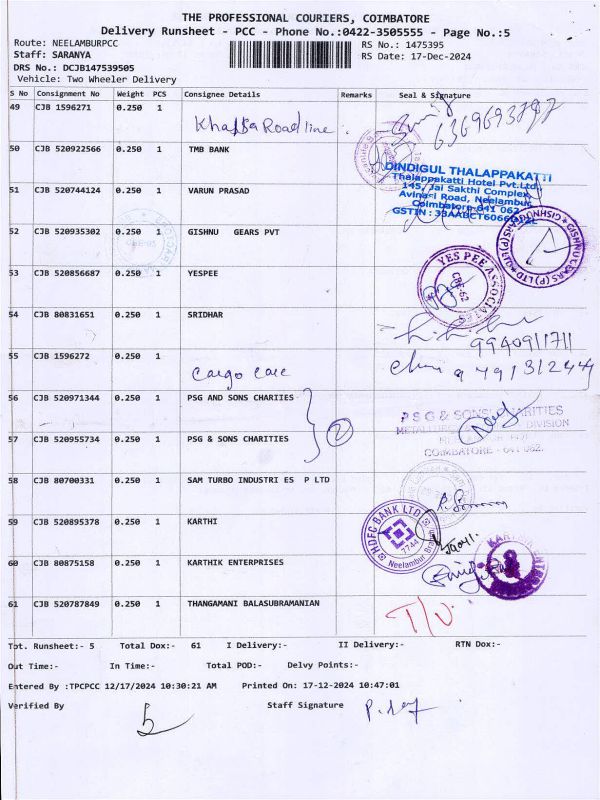 THE PROFESSIONAL COURIERS, COIMBATORE
Delivery Runsheet - PCC - Phone No.:0422-3505555 - Page No.:5
Route: NEELAMBURPCC RS No.: 1475395
Staff: SARANYA RS Date: 17-Dec-2024
DRS No.: DCJB147539505
Vehicle: Two Wheeler Delivery
S No Consignment No Weight PCS Consignee Details Remarks Seal & Signature
49 CJB 1596271 0.250 1 Roadline
50 CJB 520922566 0.250 1 TMB BANK
DINDIGUL THALAPPAKATTI
Thalappakatti Hotel Pvt.Ltd.,
145, Jai Sakthi Complex,
Avinasi Road, Neelambur,
Coimbatore-641 062.
51 CJB 520744124 0.250 1 VARUN PRASAD
52 CJB 520935302 0.250 1 GISHNU GEARS PVT
GISHNU GEARS (P) LTD
53 CJB 520856687 0.250 1 YESPEE
YES PEE ASSOCIATES
CBE-62
54 CJB 80831651 0.250 1 SRIDHAR
9940911711
55 CJB 1596272 0.250 1 Cargo Care
56 CJB 520971344 0.250 1 PSG AND SONS CHARIIES
2
PSG & SONS' CHARITIES
57 CJB 520955734 0.250 1 PSG & SONS CHARITIES
COIMBATORE - 641 062.
58 CJB 80700331 0.250 1 SAM TURBO INDUSTRI ES P LTD
59 CJB 520895378 0.250 1 KARTHI
HDFC BANK LTD
7744
Neelambur Branch
60 CJB 80875158 0.250 1 KARTHIK ENTERPRISES
61 CJB 520787849 0.250 1 THANGAMANI BALASUBRAMANIAN
Tot. Runsheet:- 5 Total Dox:- 61 I Delivery:- II Delivery:- RTN Dox:-
Out Time:- In Time:- Total POD:- Delvy Points:-
Entered By :TPCPCC 12/17/2024 10:30:21 AM Printed On: 17-12-2024 10:47:01
Verified By Staff Signature